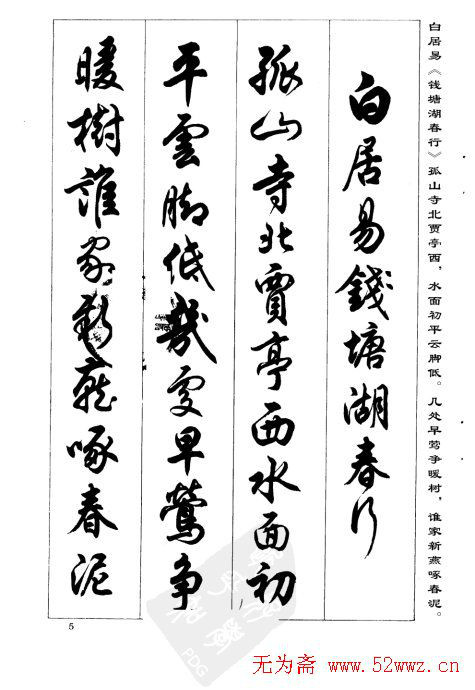 白居易《钱塘湖春行》孤山寺北贾亭西，水面初平云脚低。几处早莺争暖树，谁家新燕啄春泥。
白居易錢塘湖春行
孤山寺北賈亭西水面初
平雲脚低幾處早鶯争
暖樹誰家新燕啄春泥
5
PDG
无为斋 www.52wwz.cn